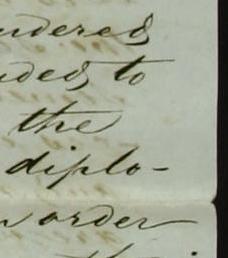 ndered
ded to
the
diplo-
order